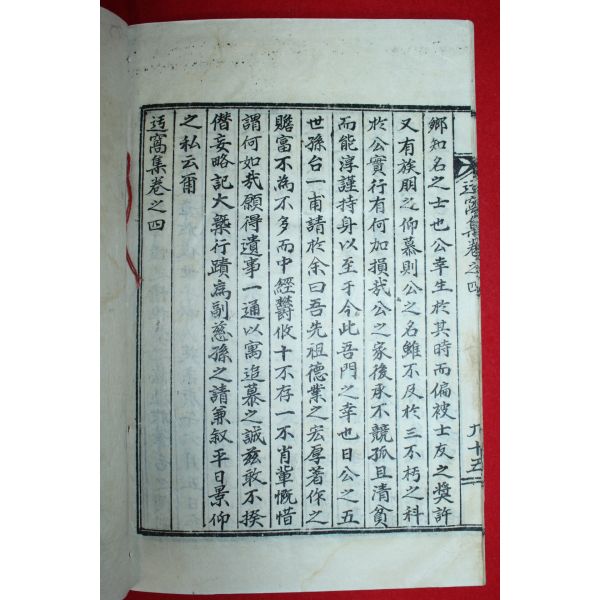 鄉知名之士也公幸生於其時而偏被士友之獎許
又有族朋之仰慕則公之名雖不及於三不朽之科
於公實行有何加損哉公之家後承不競孤且清貧
而能淳謹持身以至于今此吾門之幸也日公之五
世孫台一甫請於余曰吾先祖德業之宏厚著作之
贍富不為不多而中經鬱攸十不存一不肖輩慨惜
謂何如哉願得遺事一通以寓追慕之誠玆敢不揆
僭妄略記大槩行蹟爲副慈孫之請兼叙平日景仰
之私云爾
迃窩集卷之四
迃窩集卷之四
九十五